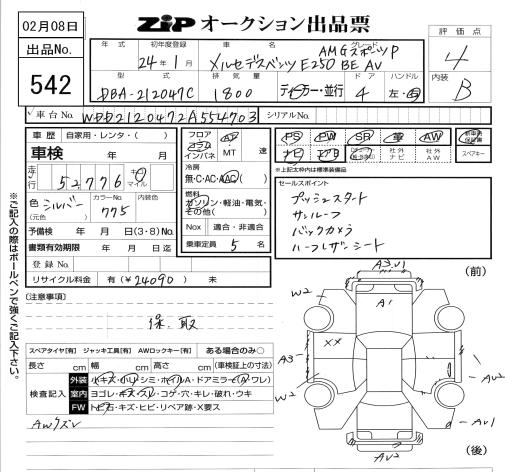 02月08日
ZiP オークション出品票
出品No.
542
年式 初年度登録 車名 グレード 評価点
24年1月 メルセデスベンツ E250 BE AV AMGスポーツP 4
型式 排気量 ドア ハンドル 内装
DBA-212047C 1800 ディーラー・並行 4 左・右 B
車台No. WDD2120472A554703 シリアルNo.
車歴 自家用・レンタ・( )
車検 年 月
走行 52776 キロ マイル
色 シルバー カラーNo. 775 内装色
(元色)
予備検 年 月 日(3・8)No.
書類有効期限 年 月 日迄
登録No.
リサイクル料金 有(¥24090) 未
フロア コラム インパネ AT MT 速
冷房 無・C・AC・AAC( )
燃料 ガソリン・軽油・電気・その他( )
Nox 適合・非適合
乗車定員 5 名
PS PW SR 革 AW
ナビ エアB 社外ナビ 社外AW
スペアキー
※上記太枠内は標準装備品
セールスポイント
プッシュスタート
サンルーフ
バックカメラ
ハーフレザーシート
(前)
[注意事項]
保取
スペアタイヤ[有] ジャッキ工具[有] AWロックキー[有] ある場合のみ○
長さ cm 幅 cm 高さ cm (車検証上の寸法)
検査記入
外装 小キズ・小凹・シミ・ホイルA・ドアミラー(A・ワレ)
室内 ヨゴレ・キズ・スレ・コゲ・穴・キレ・破れ・ウキ
FW トビ石・キズ・ヒビ・リペア跡・X要ス
AWクズレ
A3
W2
A1
XX
A3
W2
AU2
AU1
AU2
(後)
※ご記入の際はボールペンで強くご記入下さい。